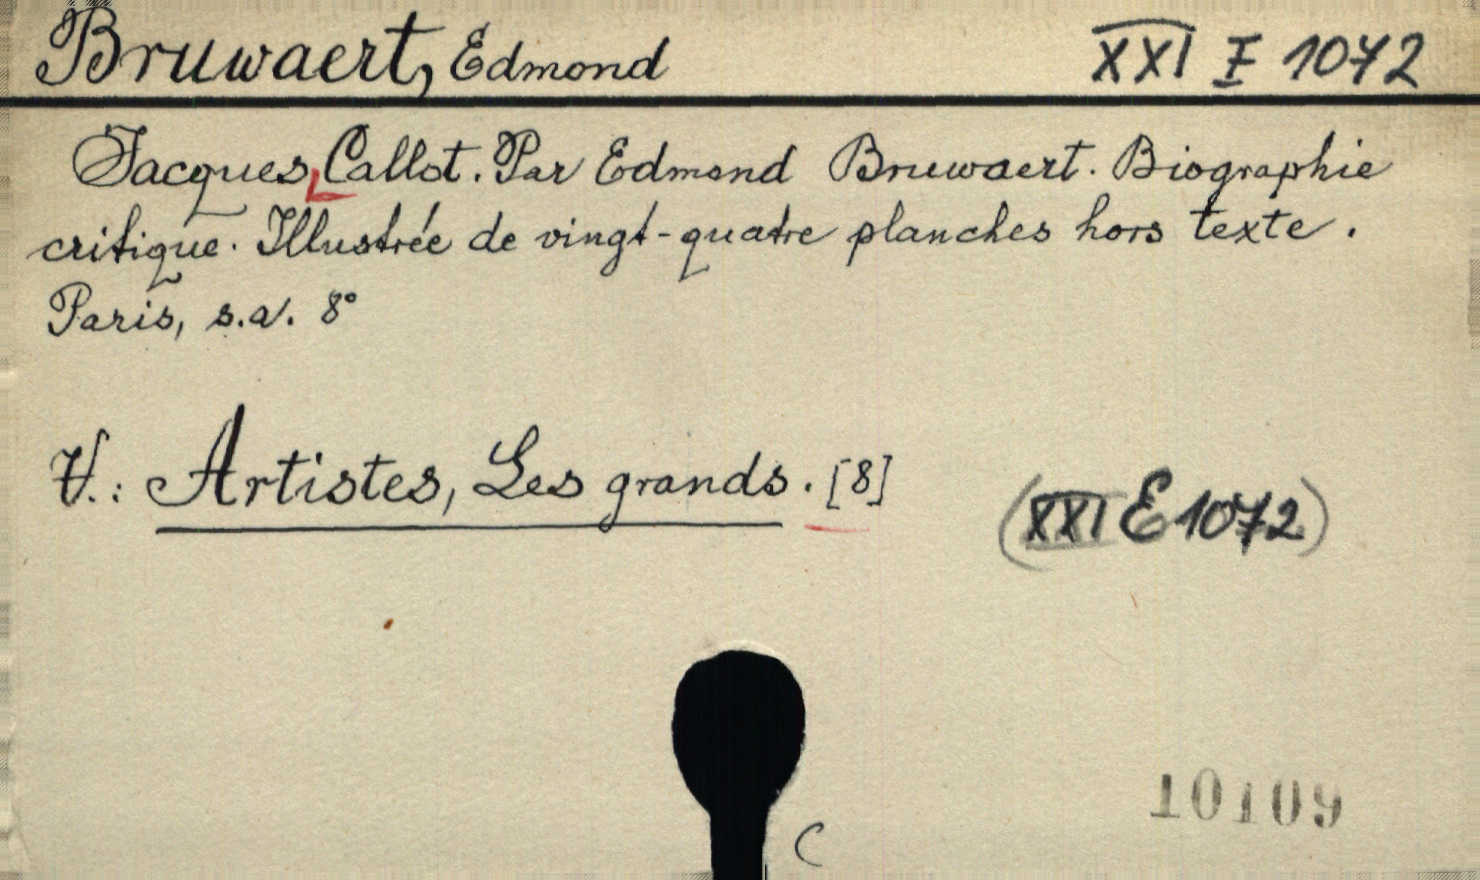 Bruwaert, Edmond XXI E 1072
Jacques Callot. Par Edmond Bruwaert. Biographie
critique. Illustrée de vingt-quatre planches hors texte.
Paris, s.a. 8°
V.: Artistes, Les grands. [8]
(XXI E 1072)
10109
C